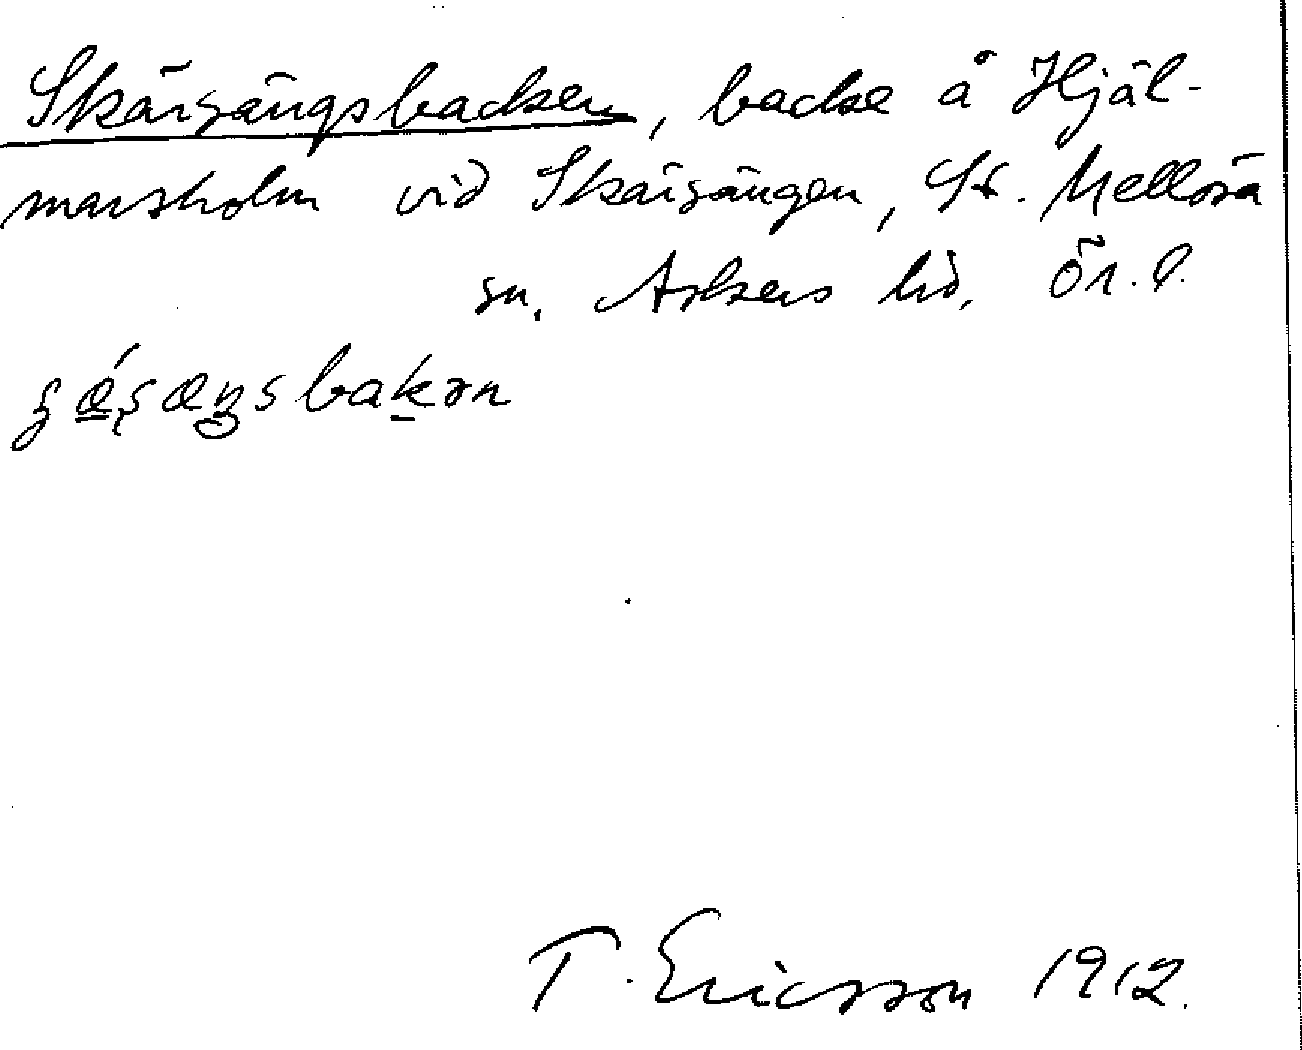 Skärsängsbacken, backe å Hjäl-
marsholm vid Skärsängen, St. Mellösa
sn, Askers hd, Ör. l.
T. Ericsson 1912.